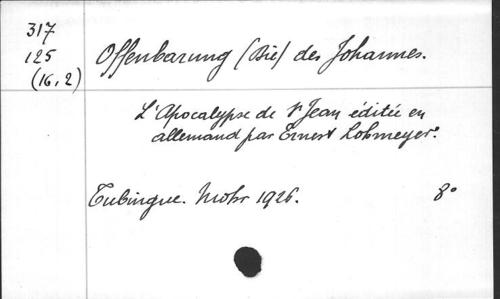 317
125
(16,2)
Offenbarung (Die) des Johannes.
L'Apocalypse de St Jean éditée en
allemand par Ernest Lohmeyer.
Tubingue. Mohr 1926. 8°